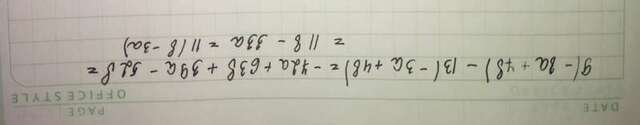 PAGE DATE
OFFICE STYLE
9(-8a+7b) - 13(-3a+4b) = -72a+63b+39a-52b =
= 11b - 33a = 11(b-3a)